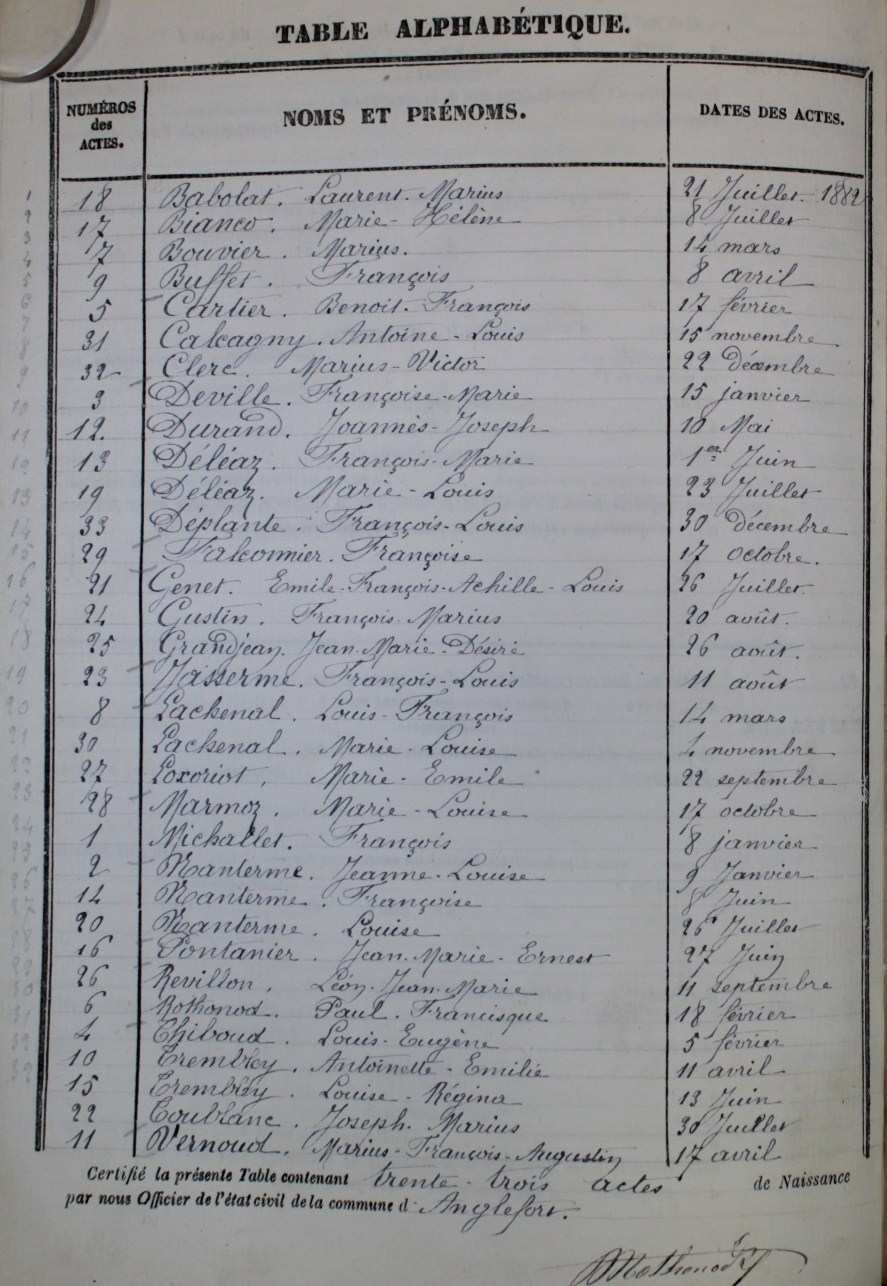 TABLE ALPHABÉTIQUE.
NUMÉROS des ACTES. NOMS ET PRÉNOMS. DATES DES ACTES.
18 Babolat. Laurent. Marius 21 Juillet 1882
17 Bianco. Marie-Hélène 8 Juillet
7 Bouvier. Marius. 14 mars
9 Buffet. François 8 avril
5 Cartier. Benoit. François 17 février
31 Calcagny. Antoine-Louis 15 novembre
32 Clerc. Marius-Victor 22 décembre
3 Deville. Françoise-Marie 15 janvier
12. Durand. Joannès-Joseph 10 Mai
13 Déléaz. François-Marie 1er Juin
19 Déléaz. Marie-Louis 23 Juillet
33 Déplante. François-Louis 30 décembre
29 Falconnier. Françoise 17 octobre.
21 Genet. Emile-François-Achille-Louis 26 Juillet
24 Gustin. François-Marius 20 août.
25 Grandjean. Jean-Marie-Désiré 26 août.
23 Jasserme. François-Louis 11 août
8 Lachenal. Louis-François 14 mars
30 Lachenal. Marie-Louise 4 novembre
27 Loxoriot, Marie-Emile 22 septembre
28 Marmoz. Marie-Louise 17 octobre
1 Michallet. François 8 janvier
2 Nanterme. Jeanne-Louise 9 Janvier
14 Nanterme. Françoise 8 Juin
20 Nanterme. Louise 26 Juillet
16 Pontanier. Jean-Marie-Ernest 27 Juin
26 Revillon. Léon-Jean-Marie 11 septembre
6 Rothonod. Paul. Francisque 18 février
4 Thiboud. Louis-Eugène 5 février
10 Trembley. Antoinette-Emilie 11 avril
15 Trembley. Louise-Régina 13 Juin
22 Toublanc. Joseph. Marius 30 Juillet
11 Vernoud. Marius-François-Augustin 17 avril
Certifié la présente Table contenant trente-trois actes de Naissance
par nous Officier de l'état civil de la commune d'Anglefort.